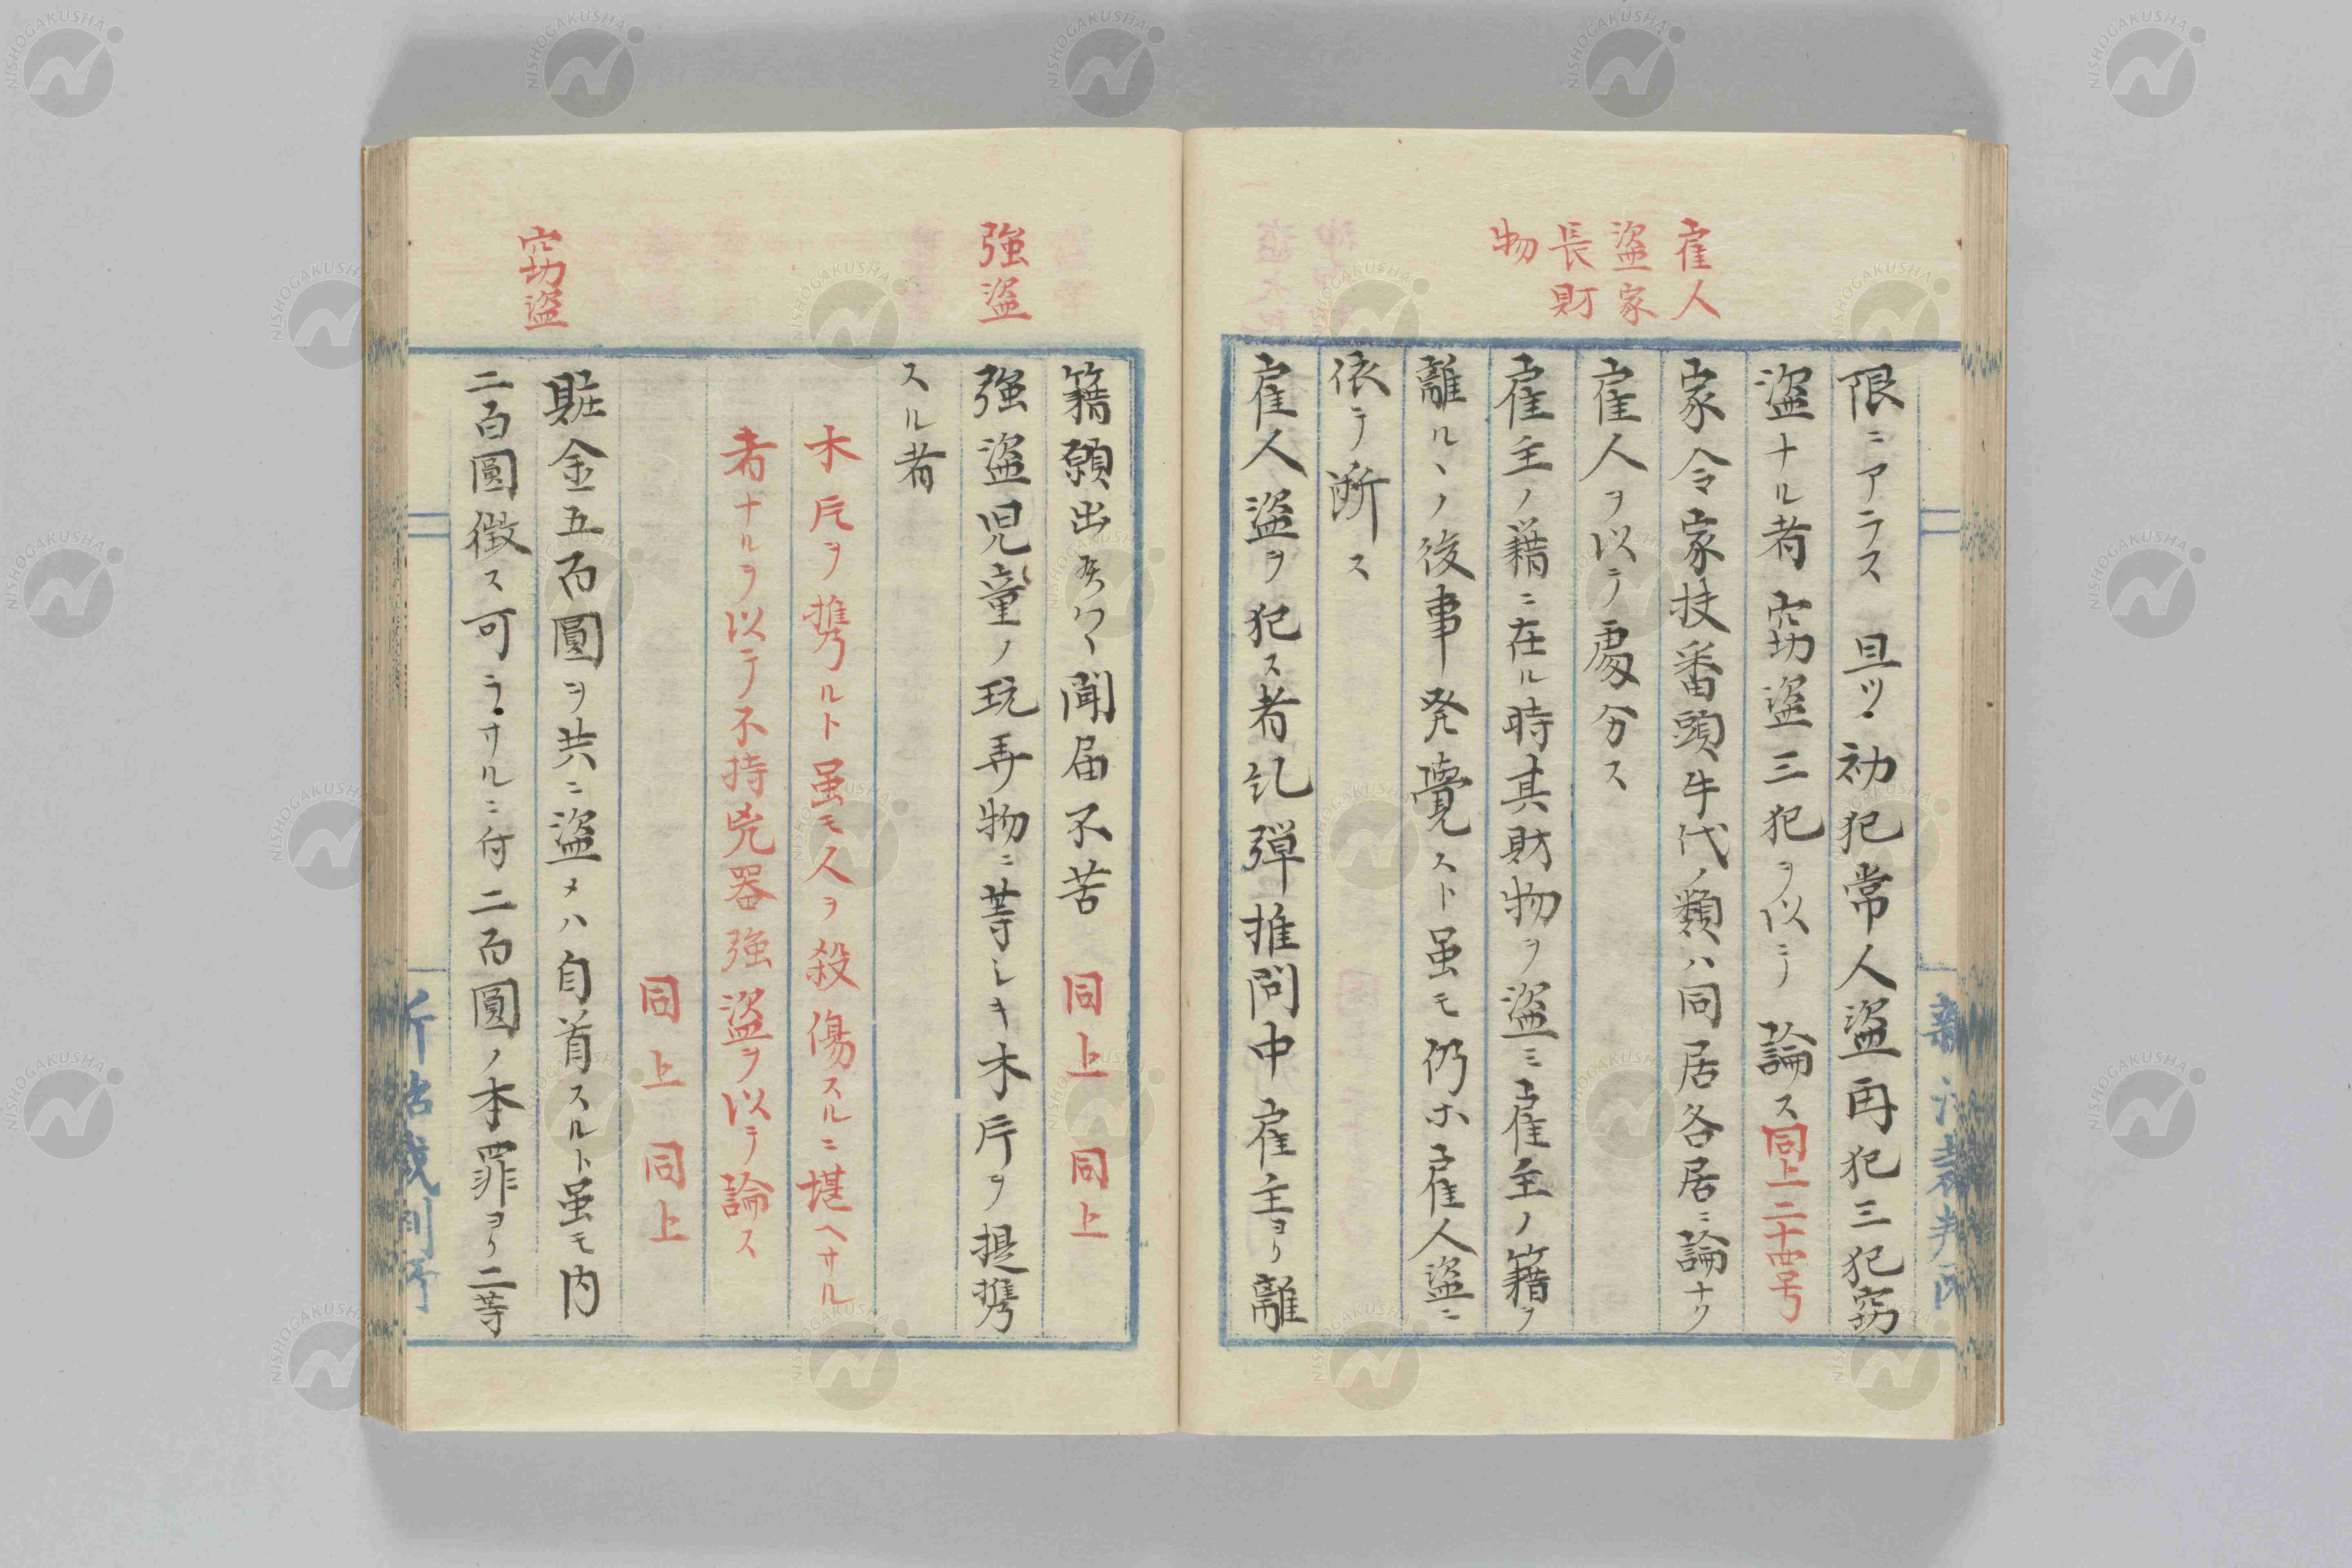 雇人
盗家
長財
物
限ニアラス且ツ初犯常人盗再犯三犯窃
盗ナル者窃盗三犯ヲ以テ論ス同上二十四号
家令家扶番頭手代ノ類ハ同居各居ニ論ナク
雇人ヲ以テ処分ス
雇主ノ籍ニ在ル時其財物ヲ盗ミ雇主ノ籍ヲ
離ルヽノ後事発覺スト虽モ仍ホ雇人盗ニ
依テ断ス
雇人盗ヲ犯ス者糺弾推問中雇主ヨリ離
強盗
籍願出候ハヽ聞届不苦 同上 同上
強盗児童ノ玩弄物ニ等シキ木片ヲ提携
スル者
木片ヲ携ルト虽モ人ヲ殺傷スルニ堪ヘサル
者ナルヲ以テ不持兇器強盗ヲ以テ論ス
同上 同上
窃盗
賍金五百圓ヲ共ニ盗メハ自首スルト虽モ内
二百圓徴ス可ラサルニ付二百圓ノ本罪ヨリ二等
NISHOGAKUSHA